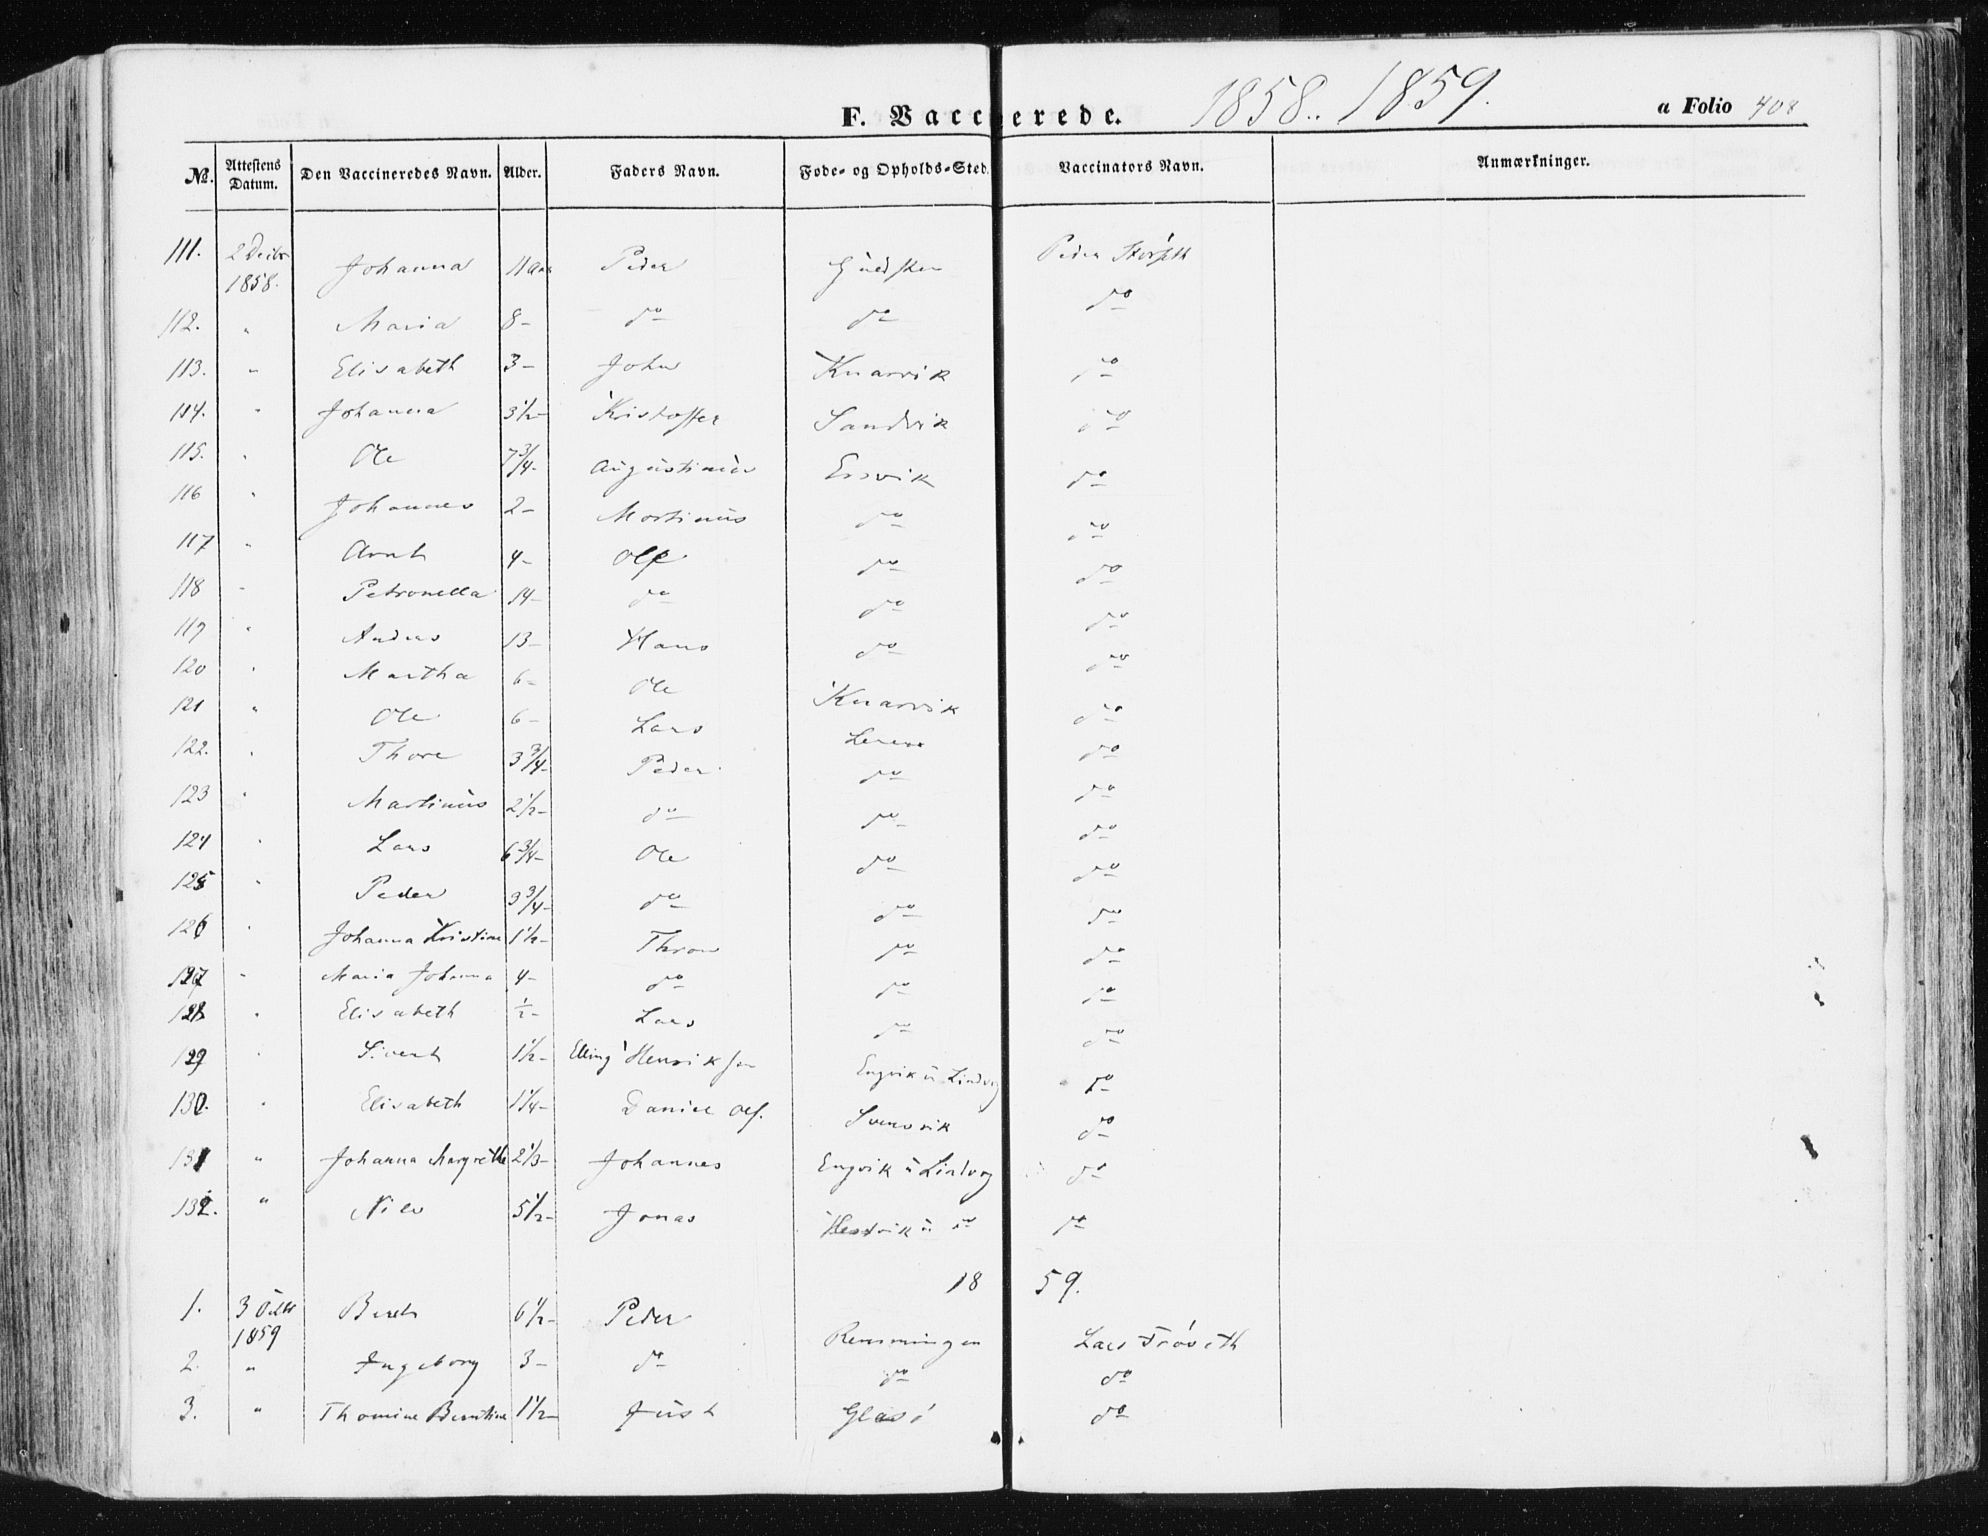 F. Vaccinerede. 1858.. 1859. a Folio 408
№. Attestens Datum. Den Vaccineredes Navn. Alder. Faders Navn. Føde- og Opholds-Sted. Vaccinators Navn. Anmærkninger.
111. 2 Decbr 1858. Johanna 11 aar Peder Peder
112. " Maria 8- do do do
113. " Elisabeth 3- John Knarvik do
114. " Johanna 3½- Kristoffer Sandvik do
115. " Ole 7¾- Augustinus Ersvik do
116 " Johannes 2- Martinus do do
117 " Arnt 4- Ole do do
118 " Petronella 14- do do do
119 " Anders 13- Hans do do
120 " Martha 6- Ole Knarvik do
121 " Ole 6- Lars do
122. " Thore 3¾- Peder do do
123 " Martinus 2½- do do do
124 " Lars 6¾- Ole do do
125 " Peder 3¾- do do do
126 " Johanna Kristine 1½- do do
127 " Maria Johanna 4- do do do
128 " Elisabeth ½- Lars do do
129 " Sivert 1½- Elling Henriksen Engvik u Lindvog do
130. " Elisabeth 1¼- Daniel Ols. Svensvik do
131 " Johanna Margrethe 2⅓- Johannes Engvik u Lindvog do
132. " Nils 5½- Jonas do do
1859.
1. 3 Octbr 1859 Beret 6½- Peder Remmingen Lars
2. " Ingeborg 3- do do do
3. " Thomine Berntine 1½- Just Glasø do